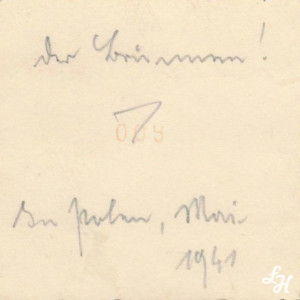 Der Brunnen!
009
In Polen, Mai
1941
LH